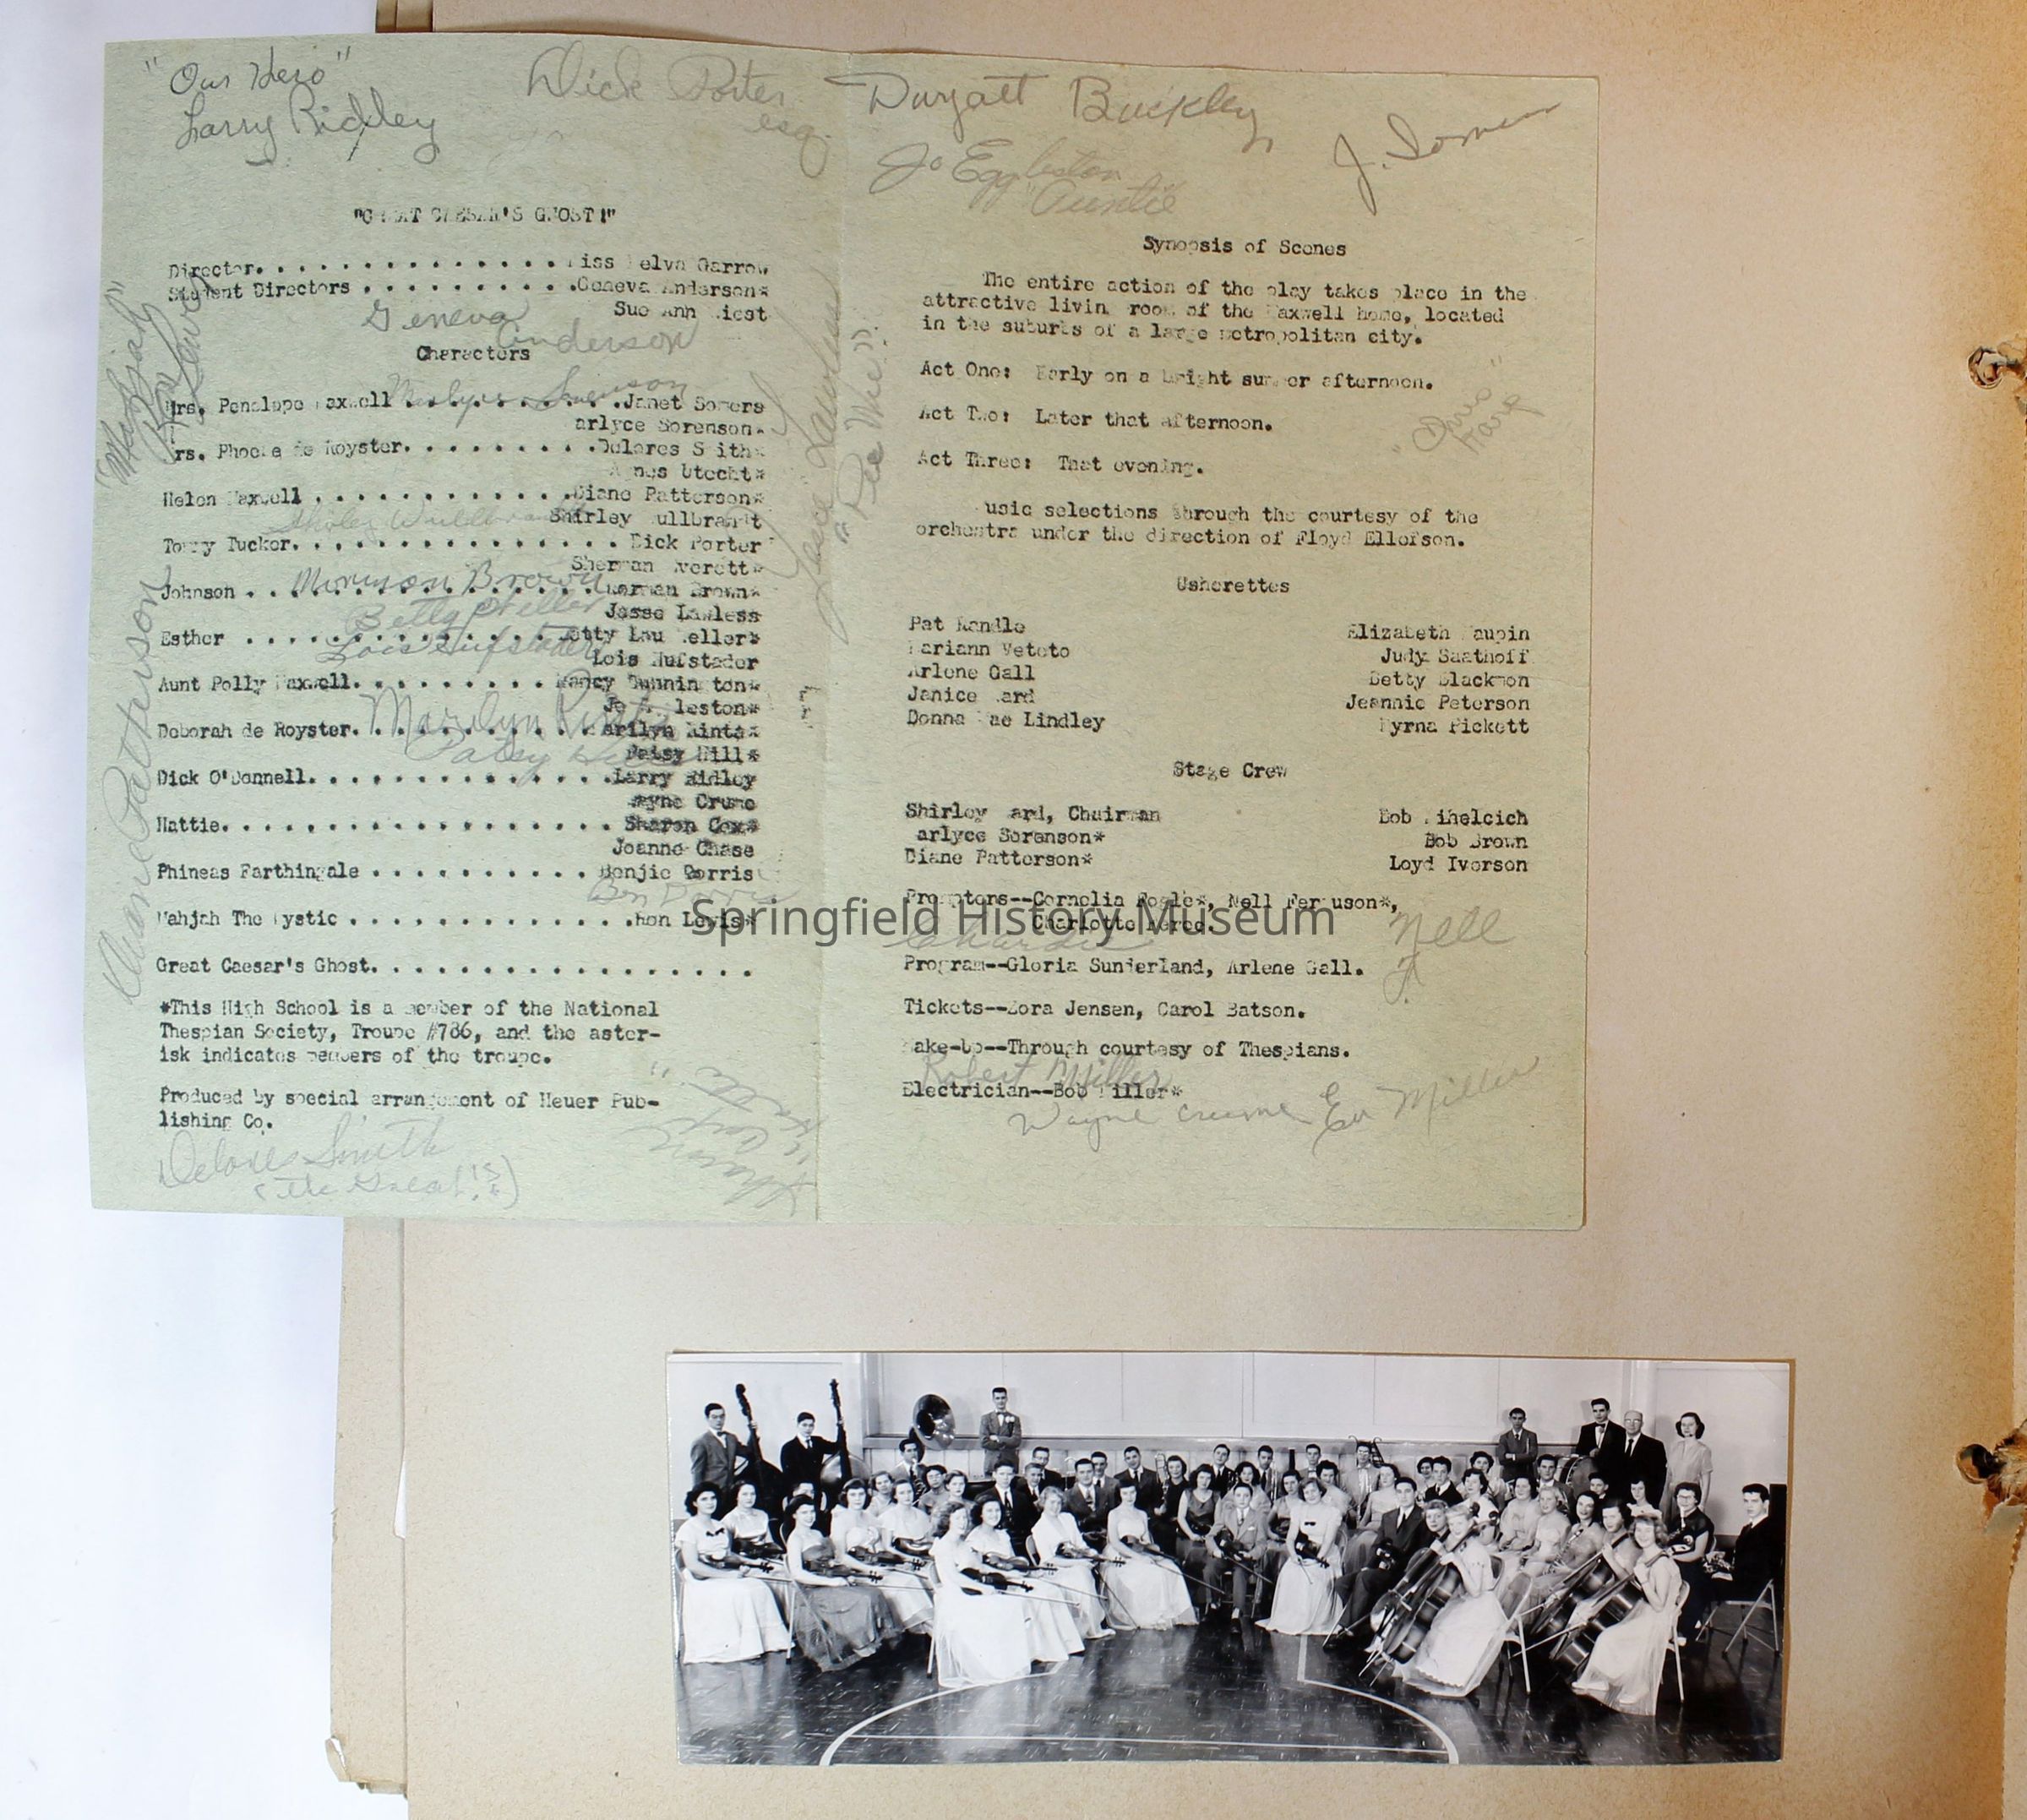 "Our Hero"
Larry Ridley
Dick Porter
esq.
"GREAT CAESAR'S GHOST!"
Director. . . . . . . . . . . . . . . iss elva Garrow
Student Directors . . . . . . . . . .Geneva Anderson*
Sue Ann iest
Geneva
Anderson
Characters
rs. Penelope axwell . . . . . . . . . .Janet Somers
arlyce Sorenson*
rs. Phoebe de Royster. . . . . . . . .Dolores S ith*
Agnes Utecht*
Helen axwell . . . . . . . . . . . . .Diane Patterson*
Shirley ullbrandt
Terry Tucker. . . . . . . . . . . . . . . Dick Porter
Sherman verett*
Johnson . . . . . . . . . . . . . . . .Norman Brown*
Norman Brown
Jesse Lawless
Betty Weller
Esther . . . . . . . . . . . . . . .Betty Lou eller*
Lois Hufstader
Lois Hufstader
Aunt Polly Maxwell. . . . . . . . . Nancy Dunnin ton*
Jo leston*
Deborah de Royster. . . . . . . . . . . arilyn Kintz*
Marilyn Kintz
Patsy Hill*
Patsy Hill
Dick O'Donnell. . . . . . . . . . . . . .Larry Ridley
ayne Crume
Hattie. . . . . . . . . . . . . . . . . Sharon Cox*
Joanne Chase
Phineas Farthingale . . . . . . . . . . .Benjie Dorris
Ben Dorris
ahjah The ystic . . . . . . . . . . . . .hon Lewis*
Great Caesar's Ghost. . . . . . . . . . . . . . . . .
*This High School is a member of the National
Thespian Society, Troupe #786, and the aster-
isk indicates members of the troupe.
Produced by special arrangement of Heuer Pub-
lishing Co.
Delores Smith
(the Great!!)
Diane Patterson
"Mahjah"
Lewis
Jesse Lawless
"Pee Wee"
Sharon Cox
"Hattie"
Dwyatt Buckley
J. Somers
Jo Eggleston
"Auntie"
Synopsis of Scenes
The entire action of the play takes place in the
attractive livin room of the axwell home, located
in the suburbs of a large metropolitan city.
Act One: Early on a bright summer afternoon.
Act Two: Later that afternoon.
Act Three: That evening.
usic selections through the courtesy of the
orchestra under the direction of Floyd Ellefson.
Usherettes
Pat Randle Elizabeth aupin
Mariann Veteto Judy Saathoff
Arlene Gall Betty Blackmon
Janice ard Jeannie Peterson
Donna ae Lindley yrna Pickett
Stage Crew
Shirley ard, Chairman Bob ihelcich
arlyce Sorenson* Bob Brown
Diane Patterson* Loyd Iverson
Prompters--Cornelia Pogle*, Nell Fer uson*,
Charlotte Herod.
Nell
F.
Program--Gloria Sunderland, Arlene Gall.
Tickets--Zora Jensen, Carol Batson.
ake-Up--Through courtesy of Thespians.
Robert Miller
Electrician--Bob iller*
Wayne Crume Ev Miller
Springfield History Museum